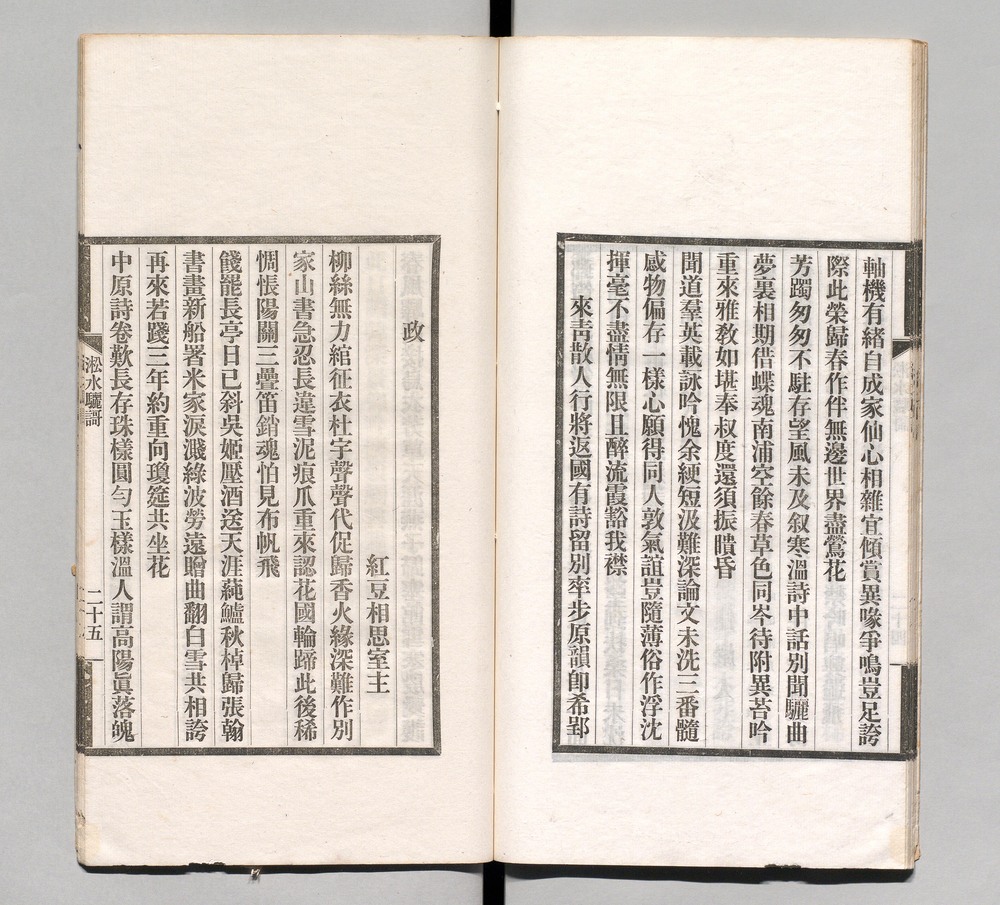 軸機有緒自成家仙心相雜宜傾賞異喙爭鳴豈足誇
際此榮歸春作伴無邊世界盡鶯花
芳躅匆匆不駐存望風未及叙寒溫詩中話別聞驪曲
夢裏相期借蝶魂南浦空餘春草色同岑待附異苔吟
重來雅教如堪奉叔度還須振聵昏
聞道羣英載詠吟愧余綆短汲難深論文未洗三番髓
感物偏存一樣心願得同人敦氣誼豈隨薄俗作浮沈
揮毫不盡情無限且醉流霞豁我襟
來青散人行將返國有詩留別率步原韻卽希郢
政
紅豆相思室主
柳絲無力綰征衣杜宇聲聲代促歸香火緣深難作別
家山書急忍長違雪泥痕爪重來認花國輪蹄此後稀
惆悵陽關三疊笛銷魂怕見布帆飛
餞罷長亭日已斜吳姬壓酒送天涯蒓鱸秋棹歸張翰
書畫新船署米家淚濺綠波勞遠贈曲翻白雪共相誇
再來若踐三年約重向瓊筵共坐花
中原詩卷歎長存珠樣圓勻玉樣溫人謂高陽眞落魄
淞水驪謌
二十五